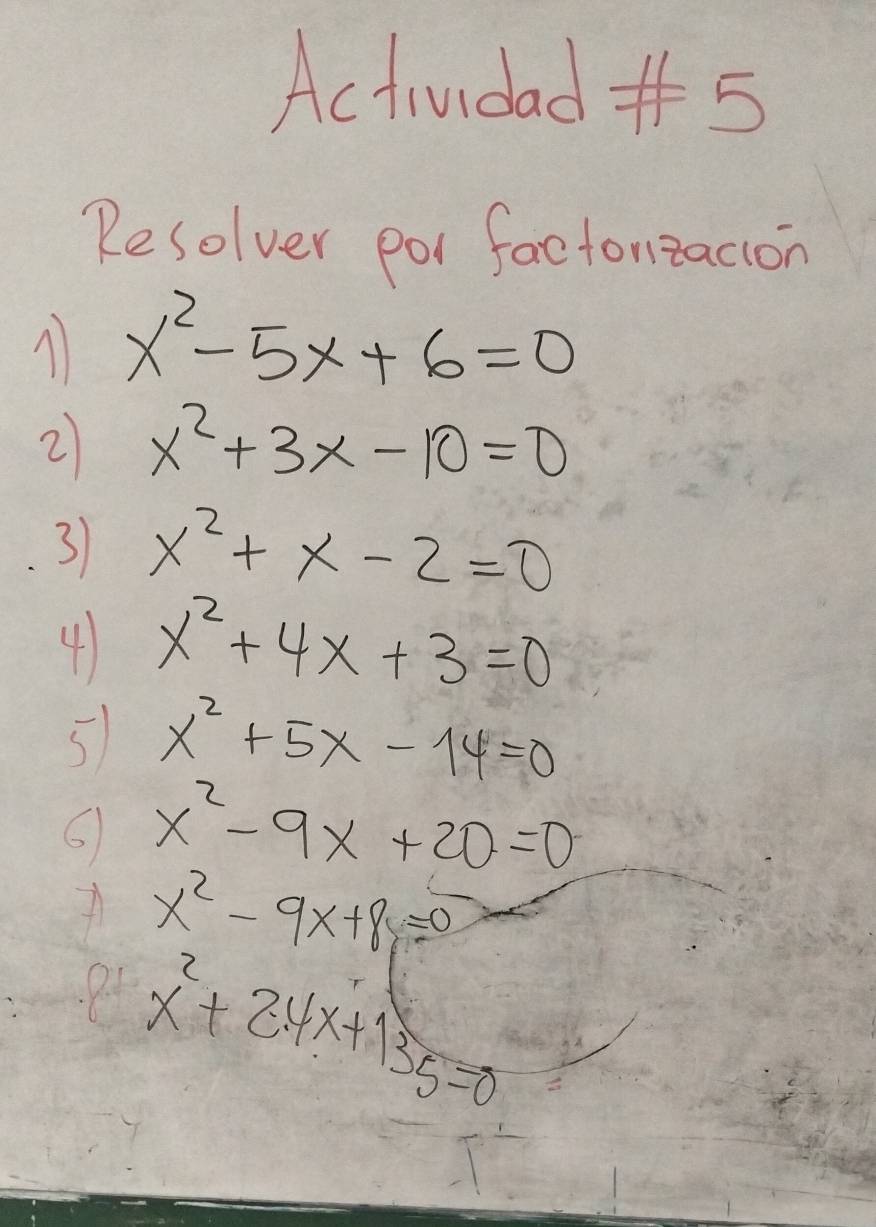 Actividad # 5
Resolver por factorización
1) x² - 5x + 6 = 0
2) x² + 3x - 10 = 0
3) x² + x - 2 = 0
4) x² + 4x + 3 = 0
5) x² + 5x - 14 = 0
6) x² - 9x + 20 = 0
7) x² - 9x + 8 = 0
8) x² + 24x + 135 = 0